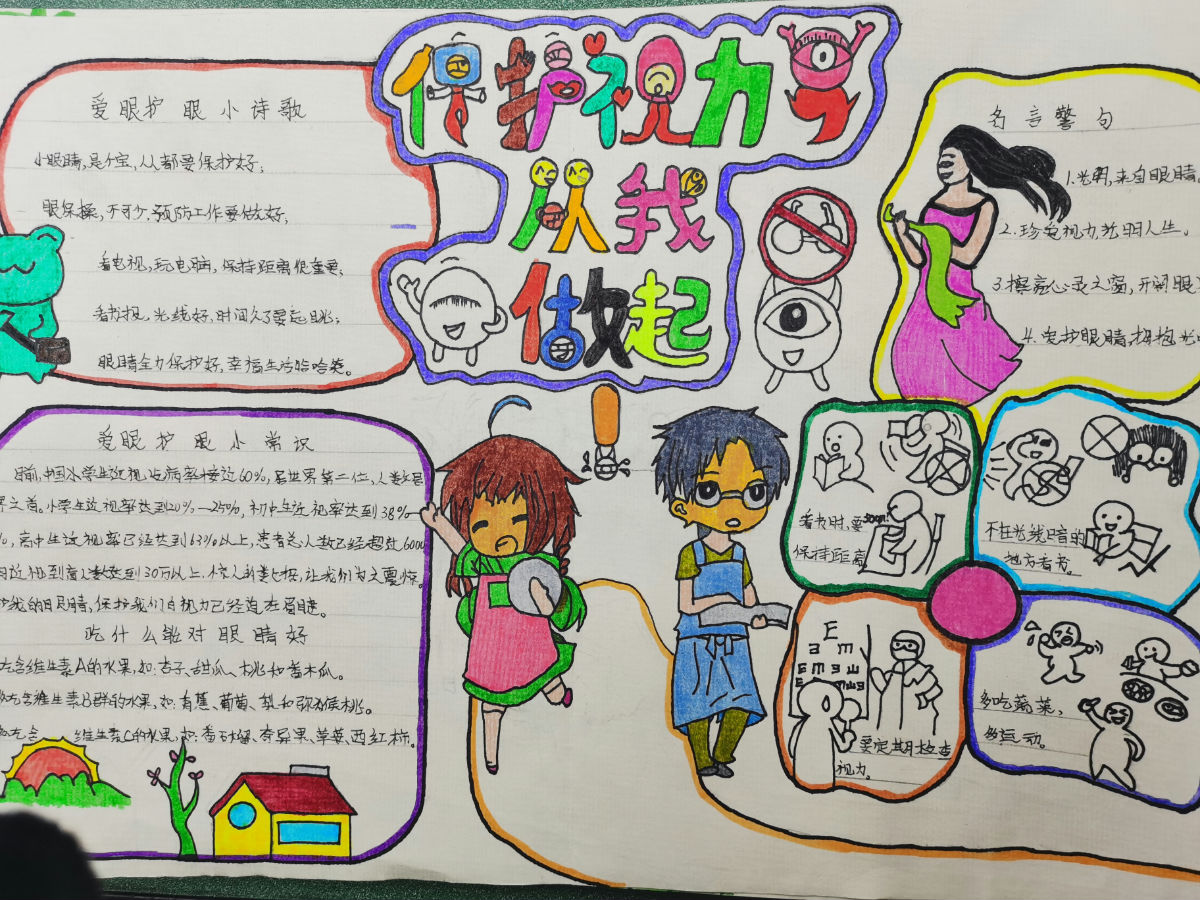 保护视力
从我
做起
爱眼护眼小诗歌
小眼睛,是个宝,从都要保护好;
眼保操,不可少,预防工作要做好;
看电视,玩电脑,保持距离很重要;
看书报,光线好,时间久了要远眺;
眼睛全力保护好,幸福生活哈哈笑。
名言警句
1.光明,来自眼睛
2.珍爱视力,光明人生。
3.擦亮心灵之窗,开阔眼
4.爱护眼睛,拥抱光
爱眼护眼小常识
目前,中国小学生近视发病率接近60%,居世界第二位,人数居
界之首。小学生近视率达到20%—25%,初中生近视率达到38%
%,高中生近视率已经达到63%以上,患者总人数已经超过6000
因近视到盲人数达到30万以上,
护我的眼睛,保护我们的视力已经迫在眉睫。
吃什么能对眼睛好
充含维生素A的水果,如:杏子、甜瓜、桃和番木瓜。
充含维生素B群的水果,如:香蕉、葡萄、梨和弥猴桃。
充含 维生素C的水果,如:番石榴、奇异果、草莓、西红柿。
看书时,要
保持距离
不在光线暗的
地方看书。
E
E m E
要定期检查
视力。
多吃蔬菜,
多运动。